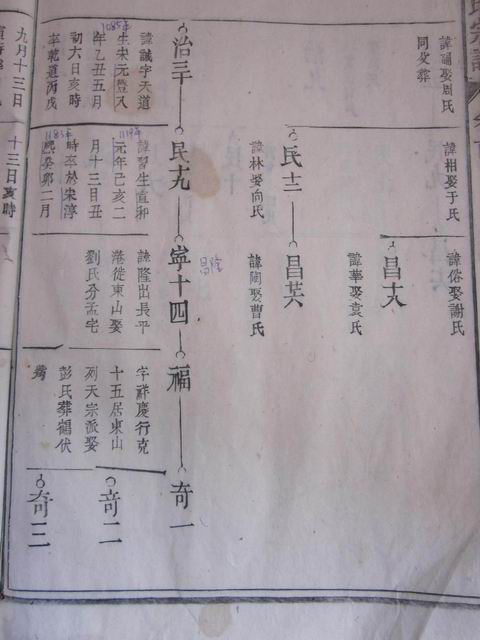 諱彌娶周氏
同妣葬
諱相娶于氏
諱俗娶謝氏
昌十八
諱華娶袁氏
民十二
昌十六
諱林娶向氏
諱陶娶曹氏
治三十
諱誠字天道
生宋元豐八
年乙丑五月
初六日亥時
卒乾道丙戌
1085年
九月十三日
民十九
諱習生宣和
元年己亥二
月十三日丑
時卒於宋淳
熙癸卯二月
1119年
1183年
十三日亥時
寧十四
昌隆
諱隆出長平
港徙東山娶
劉氏分孟宅
福一
字祥慶行克
十五居東山
列天宗派娶
彭氏葬鶴伏
奇一
奇二
奇三